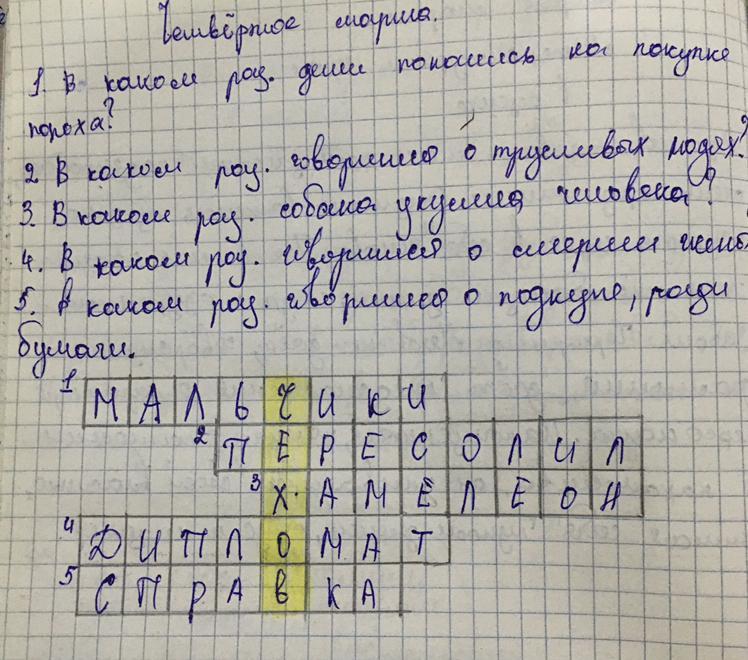 Четвёртое марта.
1. В каком рас. дети попались на покупке
пороха?
2 В каком рас. говорится о трусливых людях?
3. В каком рас. собака укусила человека?
4. В каком рас. говорится о смерти жены
5. В каком рас. говорится о подкупе, ради
бумаги.
1 МАЛЬЧИКИ
2 ПЕРЕСОЛИЛ
3 ХАМЕЛЕОН
4 ДИПЛОМАТ
5 СПРАВКА